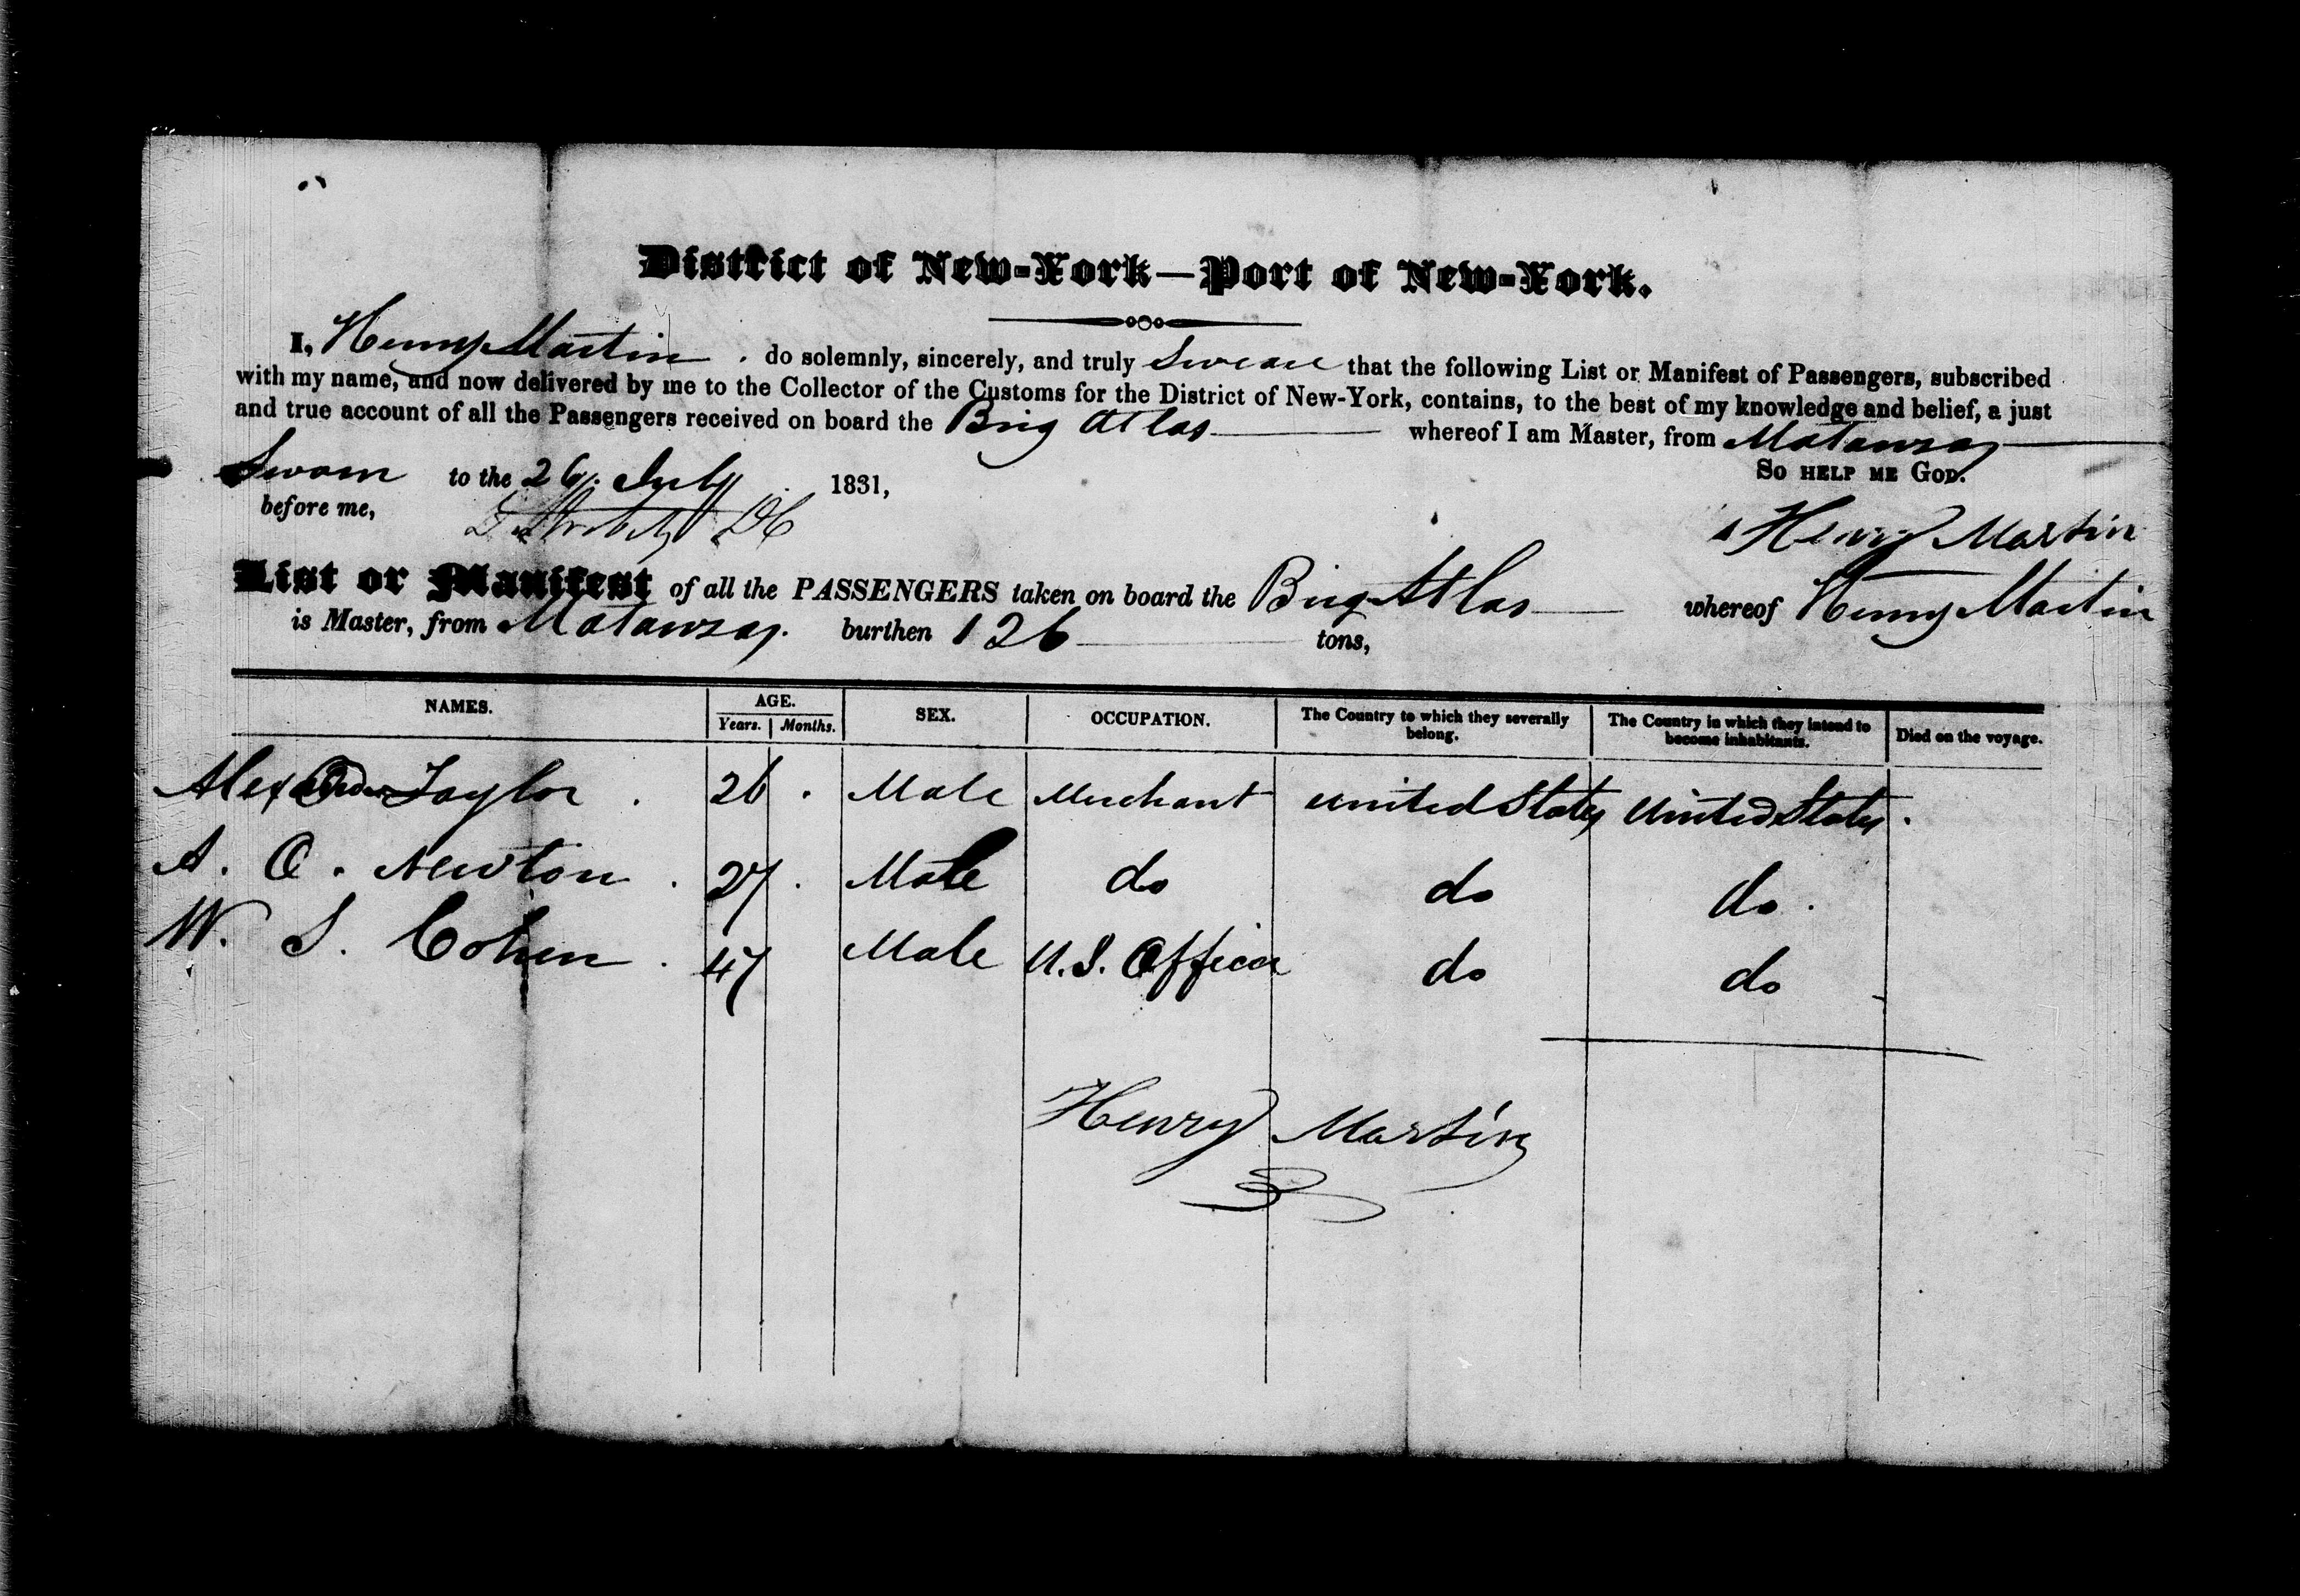 District of New-York—Port of New-York.
I, Henry Martin . do solemnly, sincerely, and truly Swear that the following List or Manifest of Passengers, subscribed
with my name, and now delivered by me to the Collector of the Customs for the District of New-York, contains, to the best of my knowledge and belief, a just
and true account of all the Passengers received on board the Brig Atlas whereof I am Master, from Matanzas
So help me God.
Sworn to the 26. July 1831,
before me,
Henry Martin
List or Manifest of all the PASSENGERS taken on board the Brig Atlas whereof Henry Martin
is Master, from Matanzas. burthen 126 tons,
NAMES. AGE. SEX. OCCUPATION. The Country to which they severally belong. The Country in which they intend to become inhabitants. Died on the voyage.
Years. Months.
Alexander Taylor . 26 . Male Merchant United States United States .
A. O. Newton . 27 . Male do do do .
W. S. Cohen . 47 Male U.S. Officer do do
Henry Martin